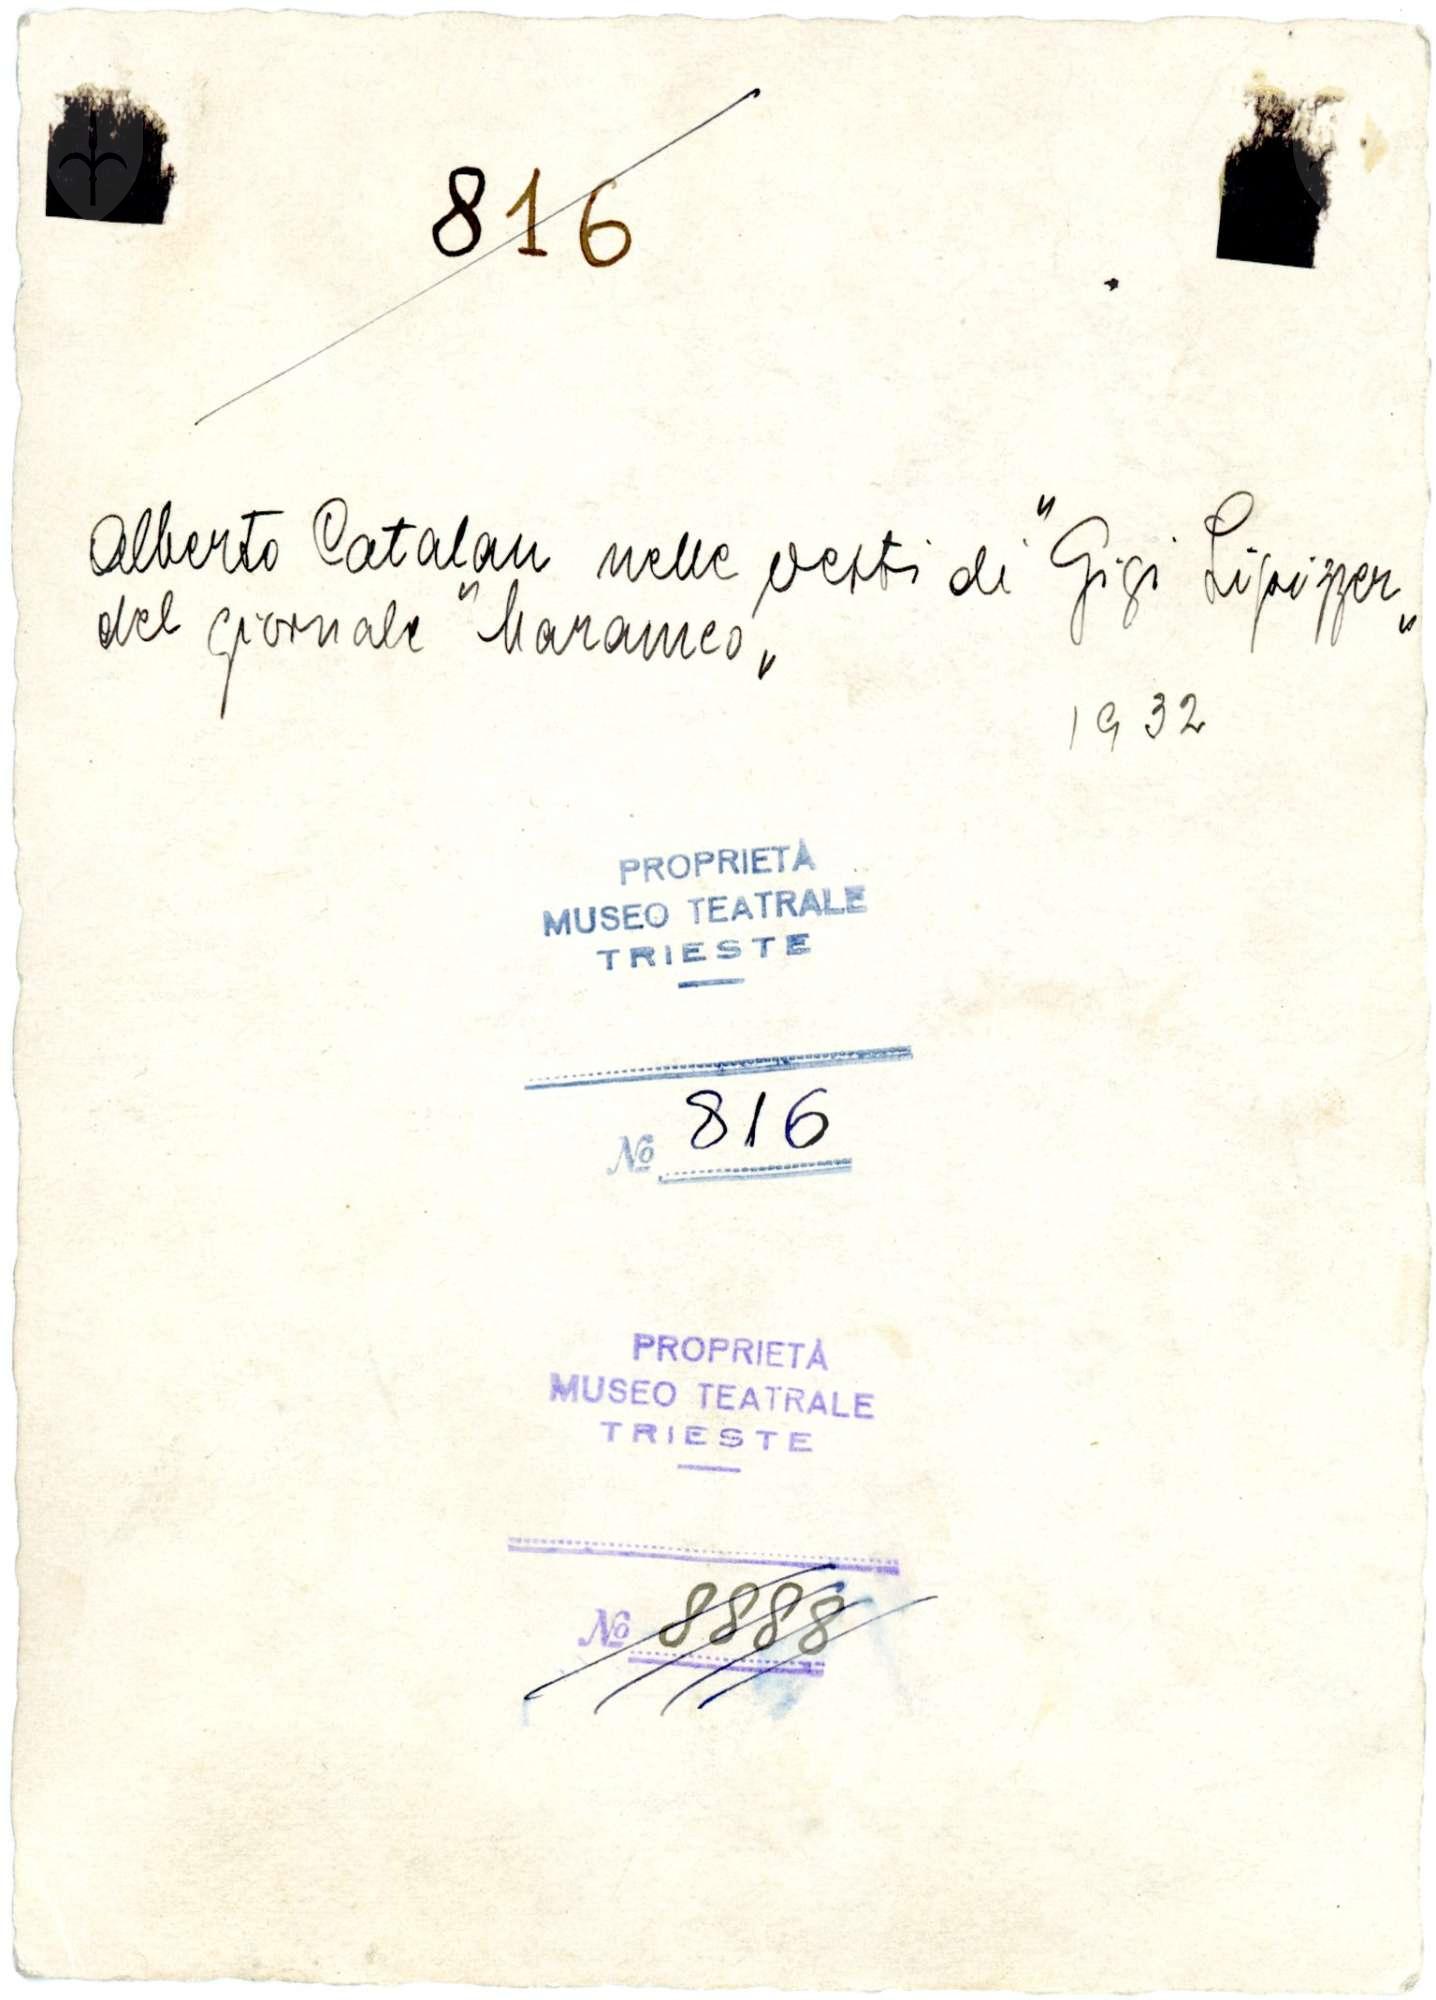 816
Alberto Catalan nelle vesti di "Gigi Lipizzer„
del giornale "Marameo„
1932
PROPRIETÀ
MUSEO TEATRALE
TRIESTE
No 816
PROPRIETÀ
MUSEO TEATRALE
TRIESTE
No 8888